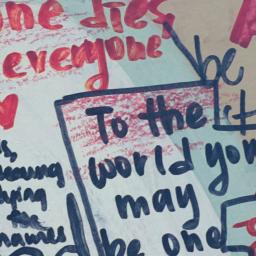 one dies
everyone
be
To the
world you
may
be one
the
names